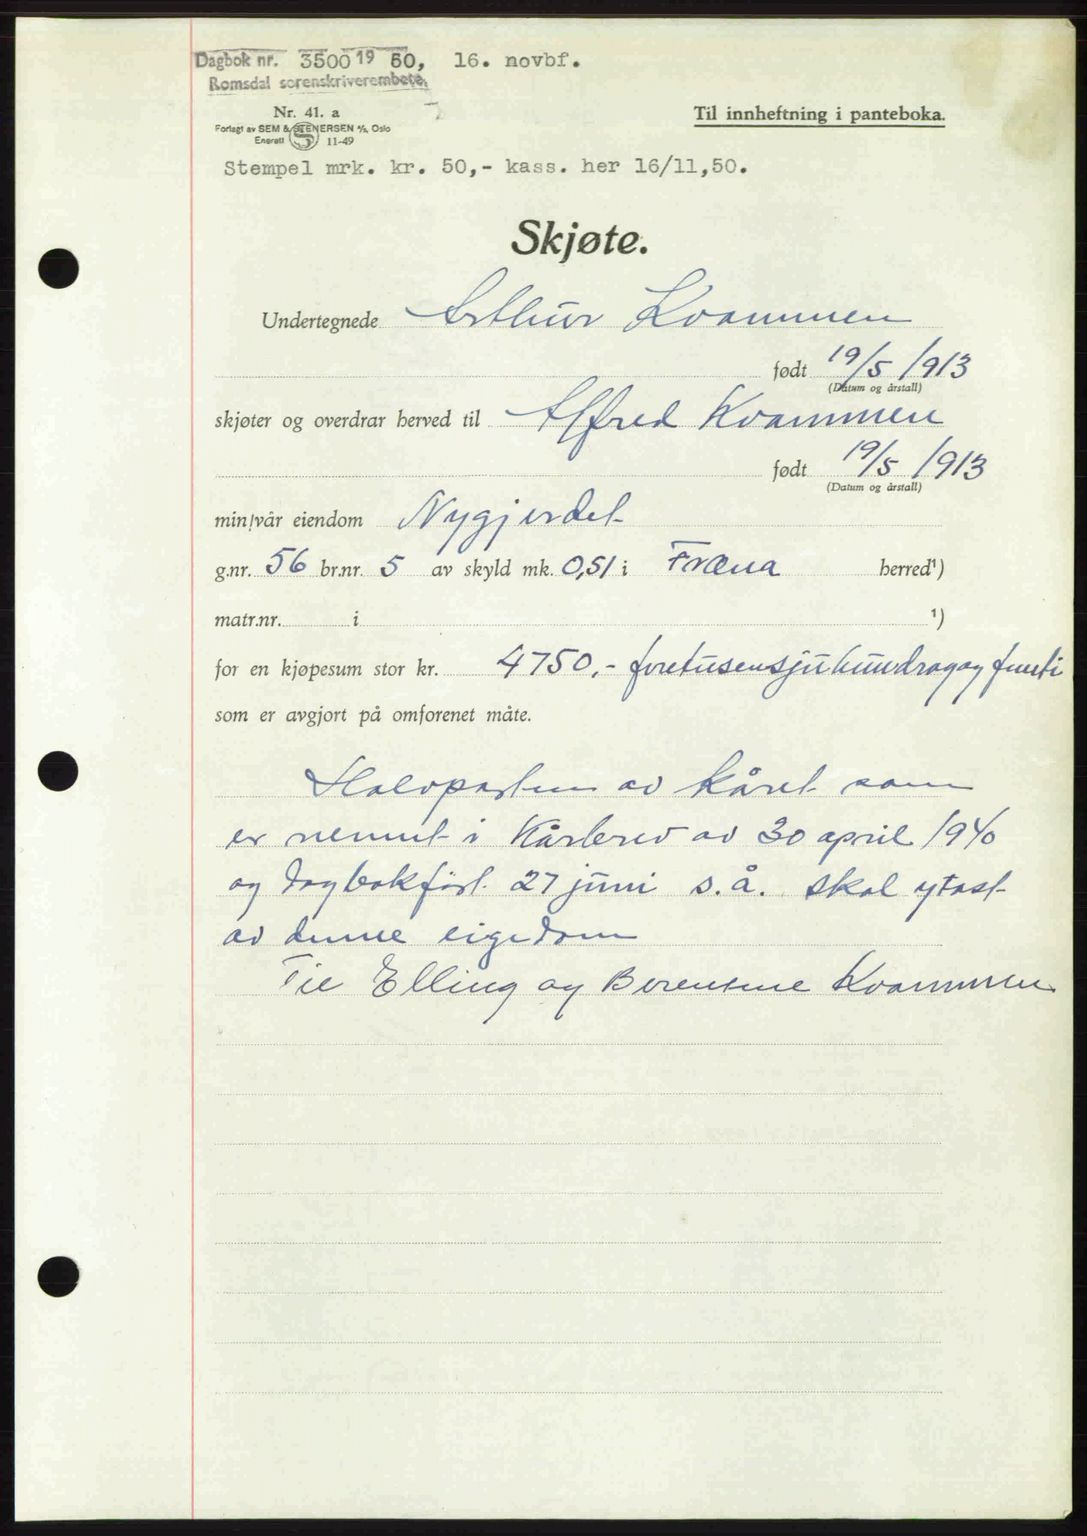 Dagbok nr. 3500 19 50, 16. novbf.
Romsdal sorenskriverembete.
Nr. 41. a
Til innheftning i panteboka.
Forlagt av SEM & STENERSEN A/S, Oslo
Enerett S 11-49
Stempel mrk. kr. 50,- kass. her 16/11,50.
Skjøte.
Undertegnede Arthur Kvammen
født 19/5 1913
(Datum og årstall)
skjøter og overdrar herved til Alfred Kvammen
født 19/5 1913
(Datum og årstall)
min/vår eiendom Nygjerdet
g.nr. 56 br.nr. 5 av skyld mk. 0,51 i Fræna herred¹)
matr.nr. i ¹)
for en kjøpesum stor kr. 4750,- firetusensjuhundragog femti
som er avgjort på omforenet måte.
Halvparten av kåret som
er nemnt i Kårbrev av 30 april 1940
og dagbokført 27 juni s.å. skal ytast
av denne eigedom
Til Elling og Berentine Kvammen